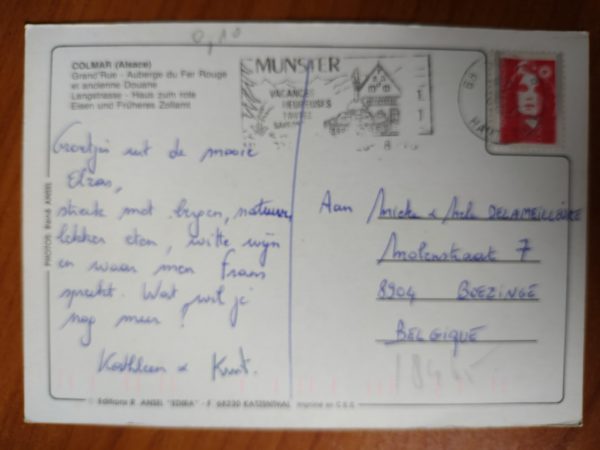 0,10
COLMAR (Alsace)
Grand'Rue - Auberge du Fer Rouge
et ancienne Douane
Langstrasse - Haus zum rote
Eisen und Früheres Zollamt
MUNSTER
VACANCES
HEUREUSES
TOUTES
PHOTOS René ANSEL
Groetjes uit de mooie
Elzas,
streek met bergen, natuur,
lekker eten, witte wijn
en waar men Frans
spreekt. Wat wil je
nog meer!
Kathleen & Knut.
Aan Mieke & DELAMEILLEURE
Molenstraat 7
8904 BOEZINGE
BELGIQUE
© Editions R. ANSEL "EDIRA" - F 68230 KATZENTHAL Imprimé en C.E.E.